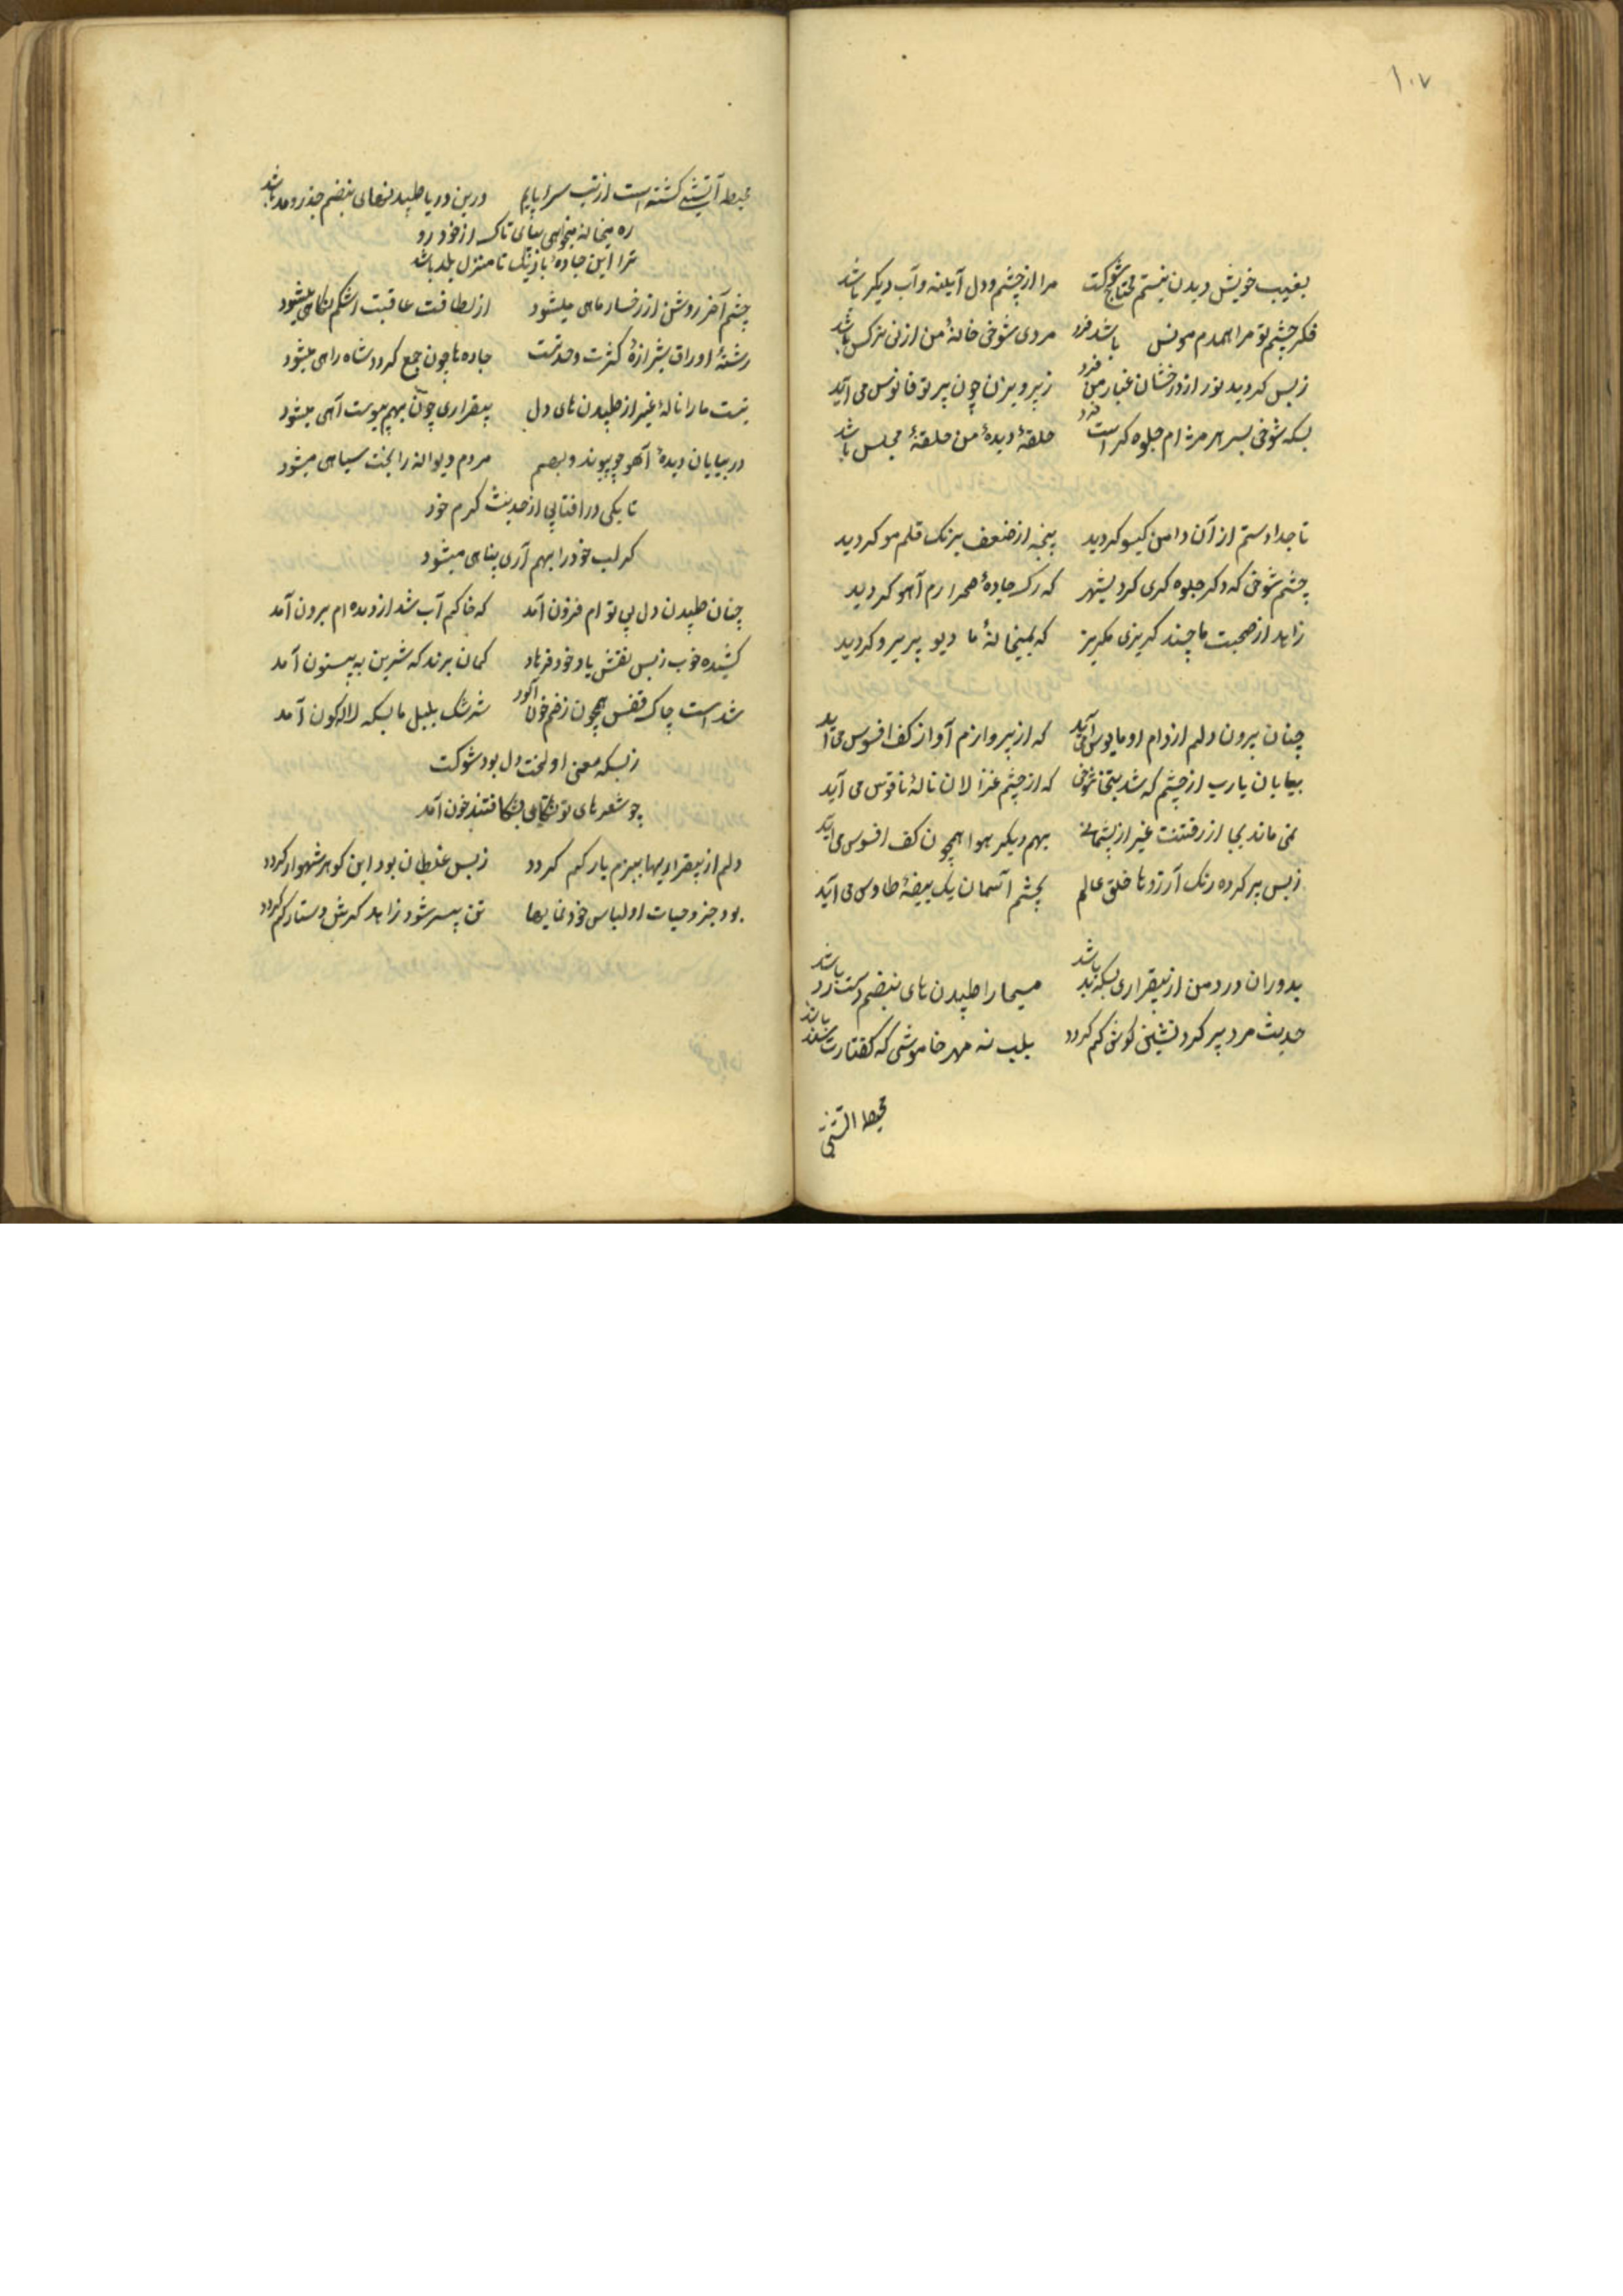 ۱۰۷
بغیب خویش دیدن نیستم محتاج شوکت مرا از چشم و دل آیینه و آب دیکر باشد
فکر چشم تو مرا همدم و مونس باشد فرد مردی شوخی خانهٔ من از نی نرکس باشد
زبس کردید نور از درخشان غبار من فرد ز پرویزن چون پرتو فانوس می آید
بسکه شوخی بسر هر مژه ام جلوه کر است فرد حلقهٔ دیدهٔ من حلقهٔ مجلس باشد
تا جدا دستم از آن دامن کیسو کردید پنجه از ضعف برنک قلم مو کردید
چشم شوخی که دکر جلوه کری کرد بشهر که رک جادهٔ صحرا رم آهو کردید
زاهد از صحبت ما چند کریزی مکریز که بمیخانهٔ ما دیو پریرو کردید
چنان بیرون دلم از دام او مایوس می آید که از پروازم آواز کف افسوس می آید
بیابان یارب از چشم که شد بتخانهٔ شوخی که از چشم غزالان نالهٔ ناقوس می آید
نمی ماند بجا از رفتنت غیر از پشیمانی بهم دیکر هوا همچون کف افسوس می آید
زبس پر کرده رنک آرزوها خلق عالم بچشم آسمان یک بیضهٔ طاوس می آید
بدوران درد من از بیقراری بسکه بد باشد مسیحا را طپیدن های نبضم دست رد باشد
حدیث مرد پیر کرد نشین کوش کم کردد بلب نه مهر خاموشی که کفتارت سند باشد
محیط آتشی
محیط آتشی کشته است از تب سراپایم درین دریا طپیدنهای نبضم جذر و مد باشد
ره میخانه میخواهی بپای تاک از خود رو
ترا این جادهٔ باریک تا منزل بلد باشد
چشم آخر روشن از رخسار ماهی میشود از لطافت عاقبت اشکم نکاهی میشود
رشتهٔ اوراق شیرازهٔ کثرت وحدتست جاده ها چون جمع کردد شاه راهی میشود
نیست ما را نالهٔ غیر از طپیدن های دل بیقراری چون بهم پیوست آهی میشود
در بیابان دیدهٔ آهو چو پیوندد بهم مردم دیوانه را بخت سیاهی میشود
تا یکی در افتابی از حدیث کرم خود
کر لب خود را بهم آری پناهی میشود
چنان طپیدن دل بی تو ام فزون آمد که خاکم آب شد از دیده ام برون آمد
کشیده خوب زبس نقش یار خود فرهاد کمان برند که شیرین به بیستون آمد
شد است چاک قفس همچون زخم خون آلود سرشک بلبل ما بسکه لاله کون آمد
زبسکه معنی او لخت دل بود شوکت
چو شعرهای تو شکافتند خون آمد
دلم از بیقراریها ببزم یار کم کردد زبس غلطان بود این کوهر شهوار کم کردد
بود جزو حیات او لباس خود نمایها تن بیسر شود زاهد کرش دستار کم کردد